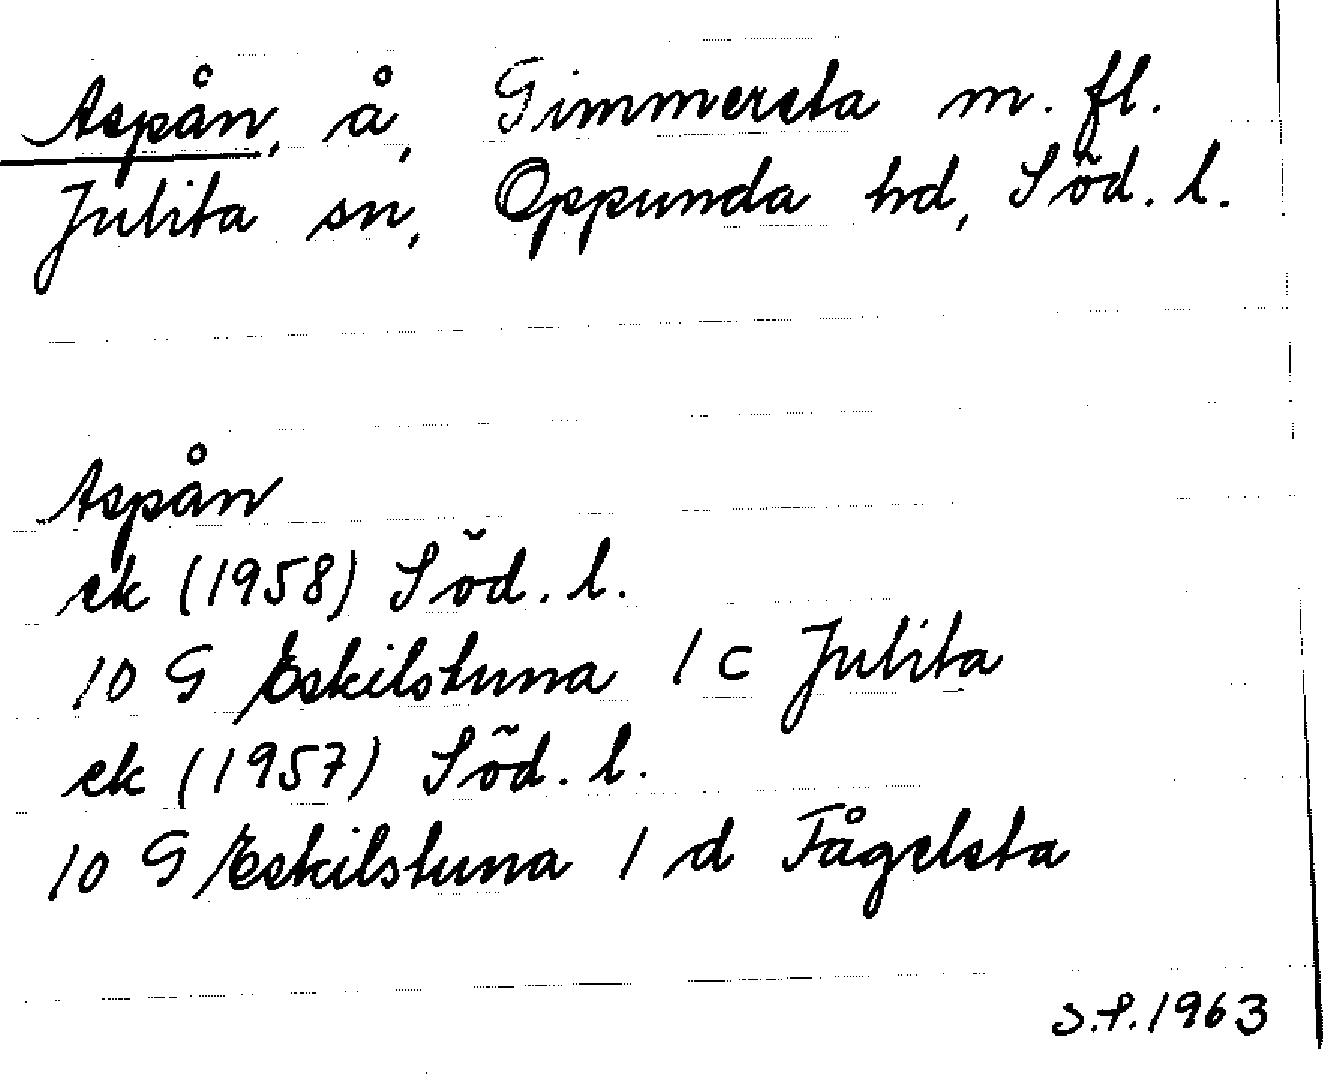 Aspån, å, Gimmersta m. fl.
Julita sn, Oppunda hd, Söd. l.
Aspån
ek (1958) Söd. l.
10 G Eskilstuna 1 c Julita
ek (1957) Söd. l.
10 G Eskilstuna 1 d Fågelsta
S.P. 1963